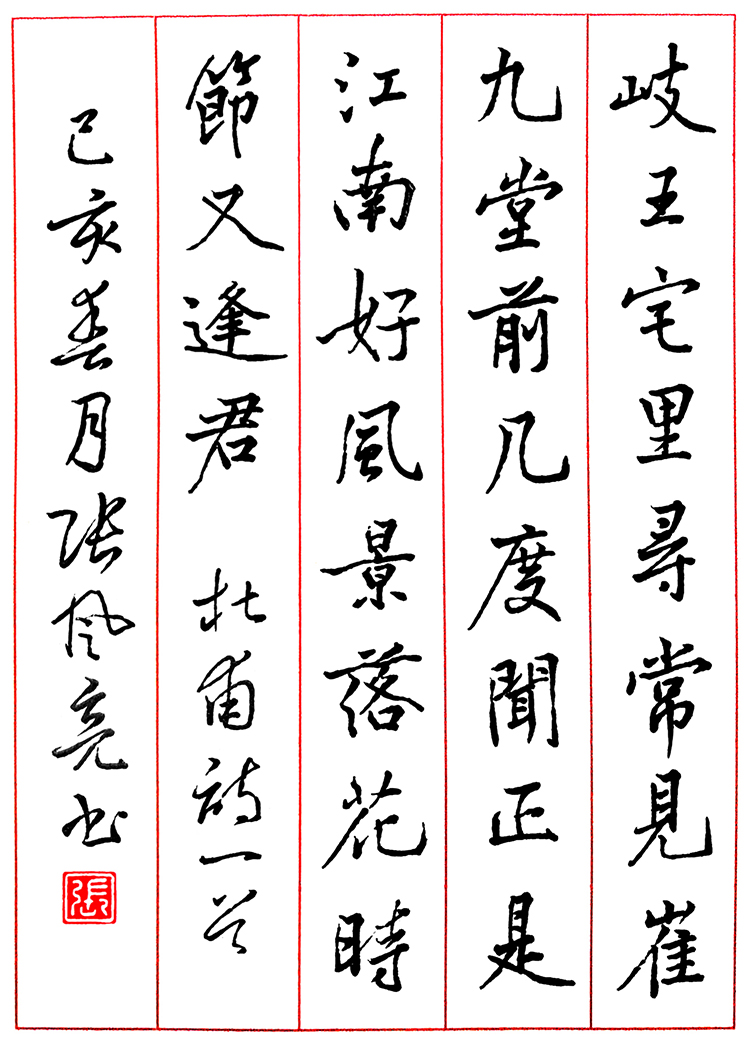 岐王宅里尋常見崔
九堂前几度聞正是
江南好風景落花時
節又逢君 杜甫詩一首
己亥春月张风亮书
張